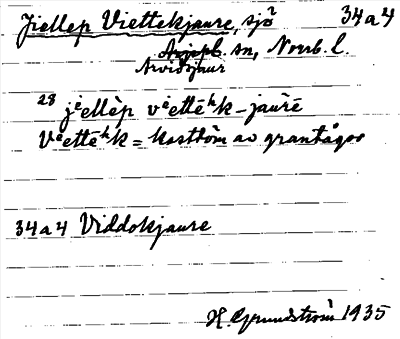 Jiellep Viettekjaure, sjö 34a4
Arjepl. sn, Norrb. l.
Arvidsjaur
28 jiellēp viettēhk-jaùrē
Viettēhk = kosttōm av grantågor
34a4 Viddokjaure
H. Grundström 1935